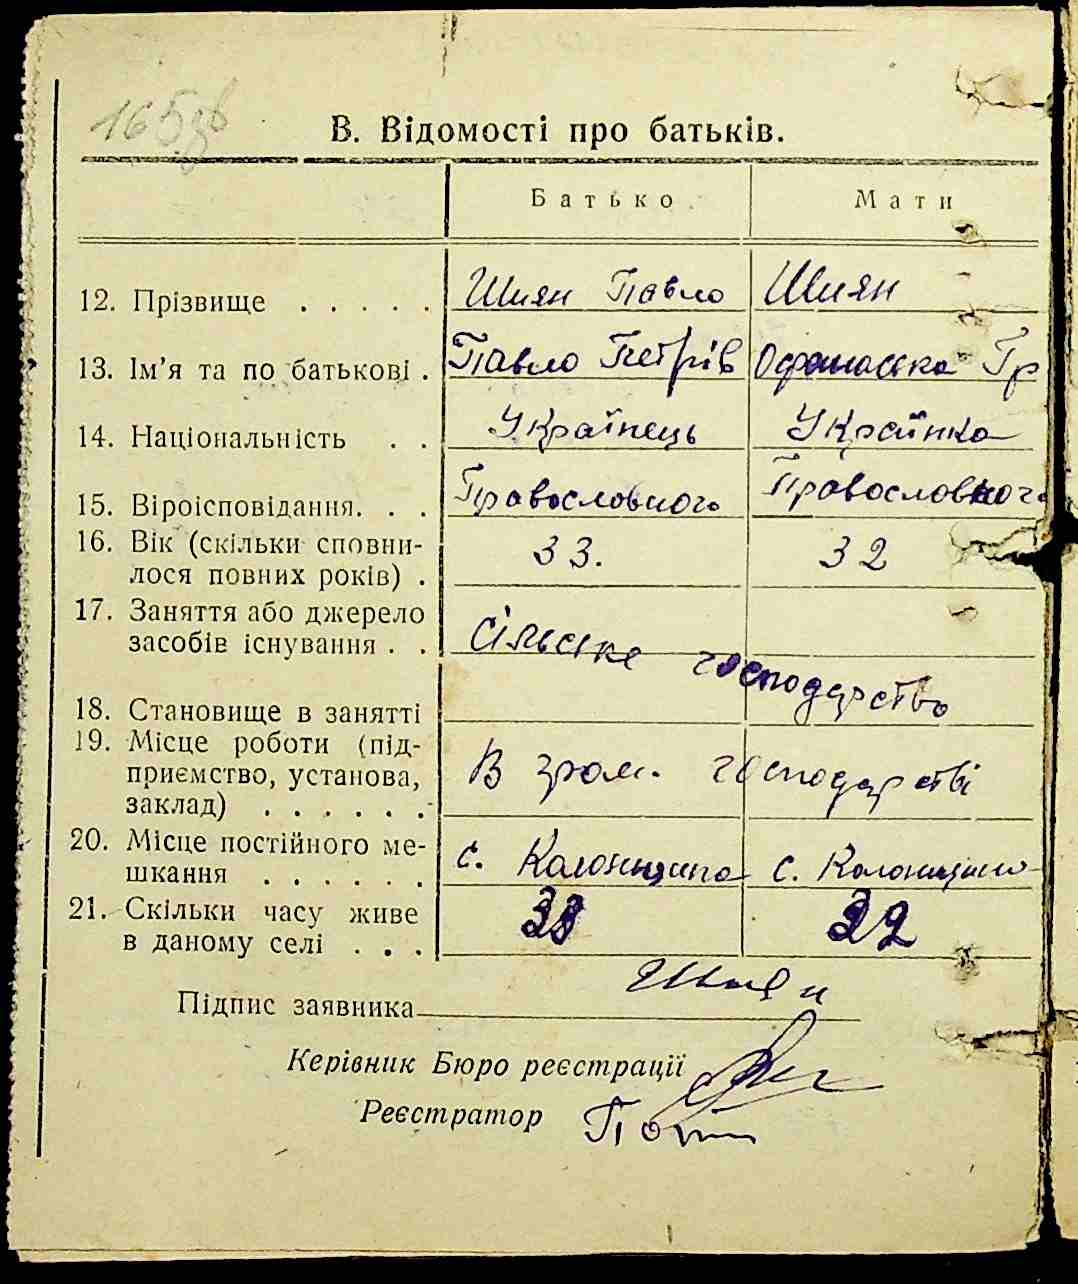 165зв
В. Відомості про батьків.
Батько Мати
12. Прізвище . . . . . Шиян Павло Шиян
13. Ім'я та по батькові . Павло Петрів Офанаська Гр
14. Національність . . Українець Українка
15. Віроісповідання. . . Православного Православного
16. Вік (скільки сповни-
лося повних років) . 33. 32
17. Заняття або джерело
засобів існування . . сільське господарство
18. Становище в занятті
19. Місце роботи (під-
приємство, установа,
заклад) . . . . . . В гром. господарстві
20. Місце постійного ме-
шкання . . . . . . с. Колонщина с. Колонщина
21. Скільки часу живе
в даному селі . . . 33 32
Підпис заявника Шиян
Керівник Бюро реєстрації
Реєстратор